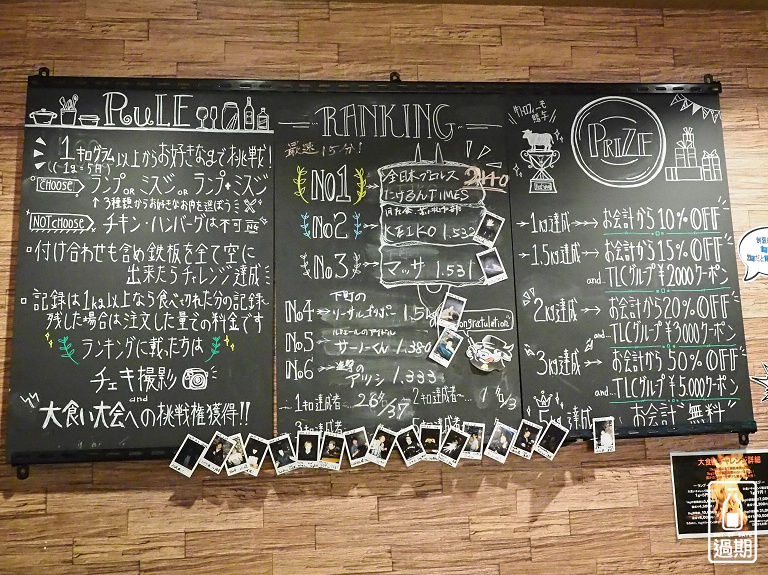 RULE
1キログラム以上からお好きなgで挑戦!
(1g=5円)
CHOOSE ランプ or ミスジ or ランプ+ミスジ
↑3種類からお好きなお肉を選ぼう
NOT CHOOSE チキン・ハンバーグは不可
・付け合わせも含め鉄板を全て空に
出来たらチャレンジ達成
・記録は1kg以上なら食べ切れた分の記録
残した場合は注文した量での料金です
ランキングに載った方は
チェキ撮影
and
大食い大会への挑戦権獲得!!
RANKING
最速15分!
No1 全日本プロレス
たけるんTIMES
No2
KEIKO 1.532
No3 マッサ 1.531
No4 下町の
リーサルウェポン 1.5
No5
サトーくん 1.380
No6
アツシ 1.333
Congratulation
~1キロ達成者~
2キロ達成者~ 1名/3
3キロ達成者
PRIZE
1kg達成→お会計から10%OFF
1.5kg達成→お会計から15%OFF
and...TLCグループ¥2000クーポン
2kg達成→お会計から20%OFF
and...TLCグループ¥3000クーポン
3kg達成→お会計から50%OFF
and...TLCグループ¥5000クーポン
5kg達成 お会計無料
過期